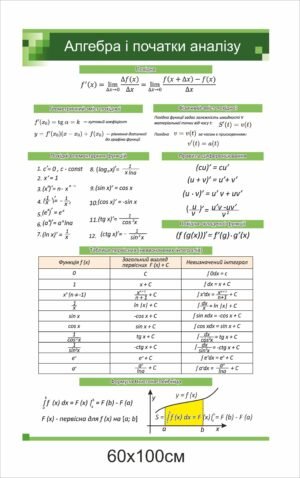 Алгебра і початки аналізу
Похідна
f'(x) = lim Δx→0 Δf(x)/Δx = lim Δx→0 (f(x + Δx) − f(x))/Δx
Геометричний зміст похідної
f'(x₀) = tg α = k – кутовий коефіцієнт
y − f'(x₀)(x − x₀) + f(x₀) – рівняння дотичної до графіка функції
S'(t) = v(t)
Похідна v = v(t) за часом є прискоренням:
v'(t) = a(t)
Похідні елементарних функцій
1. c' = 0, c - const
2. x' = 1
3. (xⁿ)' = n · xⁿ⁻¹
4. (1/x)' = −1/x²
5. (eˣ)' = eˣ
6. (aˣ)' = aˣ lna
7. (ln x)' = 1/x
8. (logₐx)' = 1/x lna
9. (sin x)' = cos x
10. (cos x)' = -sin x
11. (tg x)' = 1/cos²x
12. (ctg x)' = − 1/sin²x
Правила диференціювання
(cu)' = cu'
(u + v)' = u' + v'
(u · v)' = u' v + uv'
(u/v)' = u'v - uv'/v²
Похідна складеної функції
(f (g(x)))' = f'(g) · g'(x)
Таблиця первісних і невизначених інтегралів
Функція f (x) Загальний вигляд первісних F (x) + C Невизначений інтеграл
0 C ∫ 0dx = c
1 x + C ∫ dx = x + C
xⁿ (n ≠ -1) xⁿ⁺¹/n + 1 + C ∫ xⁿdx = xⁿ⁺¹/n+1 + C
1/x ln |x| + C ∫ dx/x = ln |x| + C
sin x -cos x + C ∫ sin xdx = -cos x + C
cos x sin x + C ∫ cos xdx = sin x + C
1/cos²x tg x + C ∫ dx/cos²x = tg x + C
1/sin²x -ctg x + C ∫ dx/sin²x = -ctg x + C
eˣ eˣ + C ∫ eˣdx = eˣ + C
aˣ aˣ/lna + C ∫ aˣdx = aˣ/lna + C
Формула Ньютона-Лейбніца
∫ₐᵇ f (x) dx = F (x) |ₐᵇ = F (b) - F (a)
F (x) - первісна для f (x) на [a; b]
y
y = f (x)
S = ∫ₐᵇ f (x) dx = F (x) |ₐᵇ = F (b) - F (a)
a b x
60x100см